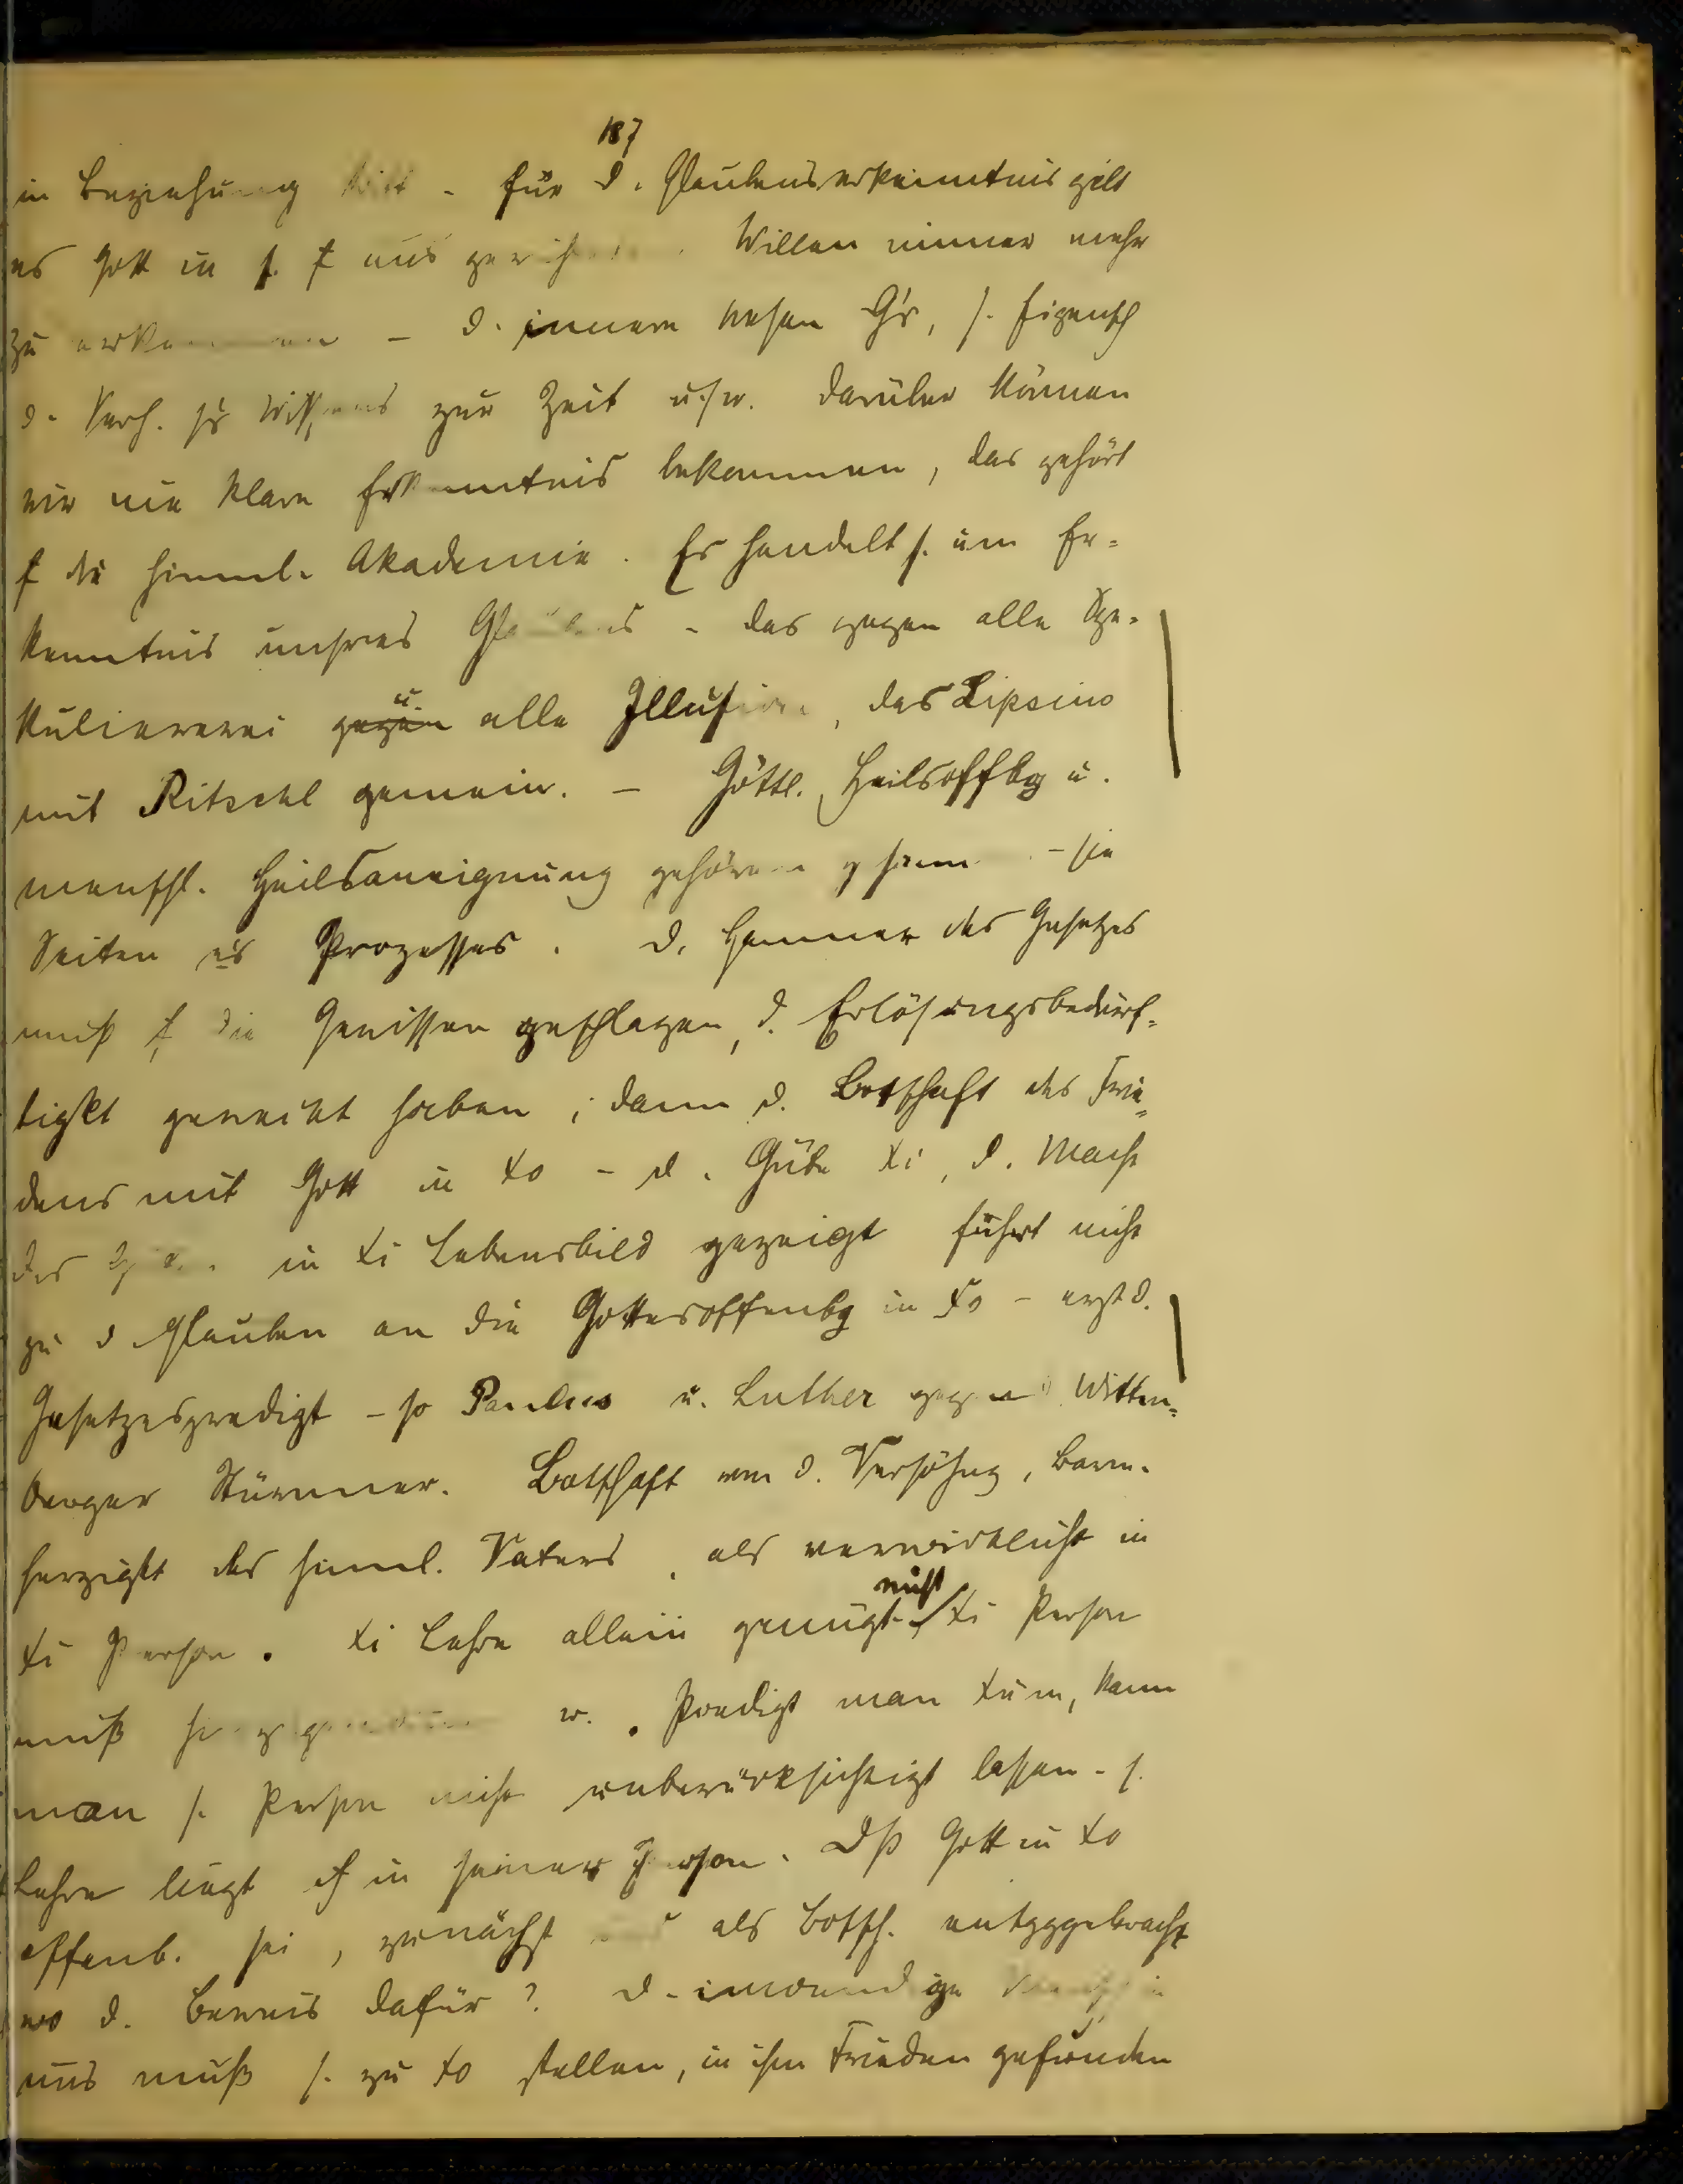 187
in Beziehung tritt - für d. Glaubenserkenntnis gilt
es Gott in s. f uns Willen immer mehr
zu erkennen - d. innere Wesen G's, s. Eigensch
d. Verh. zur Zeit u.s.w. darüber können
wir nie klare Erkenntnis bekommen, das gehört
f die himml. Akademie. Es handelt s. um Er-
kenntnis unsres Glaubens - das gegen alle Spe-
kuliererei gegen u. alle Illusion, das Lipsius
mit Ritschl gemein. - Göttl. Heilsoffbg u.
menschl. Heilsaneignung gehören - sie
Seiten es Prozesses. D. Hammer des Gesetzes
muß f die Gewissen geschlagen, d. Erlösungsbedürf-
tigkt geweckt haben; dann d. Botschaft des Frie-
dens mit Gott in Xo - d. Güte Xi, d. Macht
des in Xi Lebensbild gezeigt führt nicht
zu d Glauben an die Gottesoffenbg in Xo - erst d.
Gesetzespredigt - so Paulus u. Luther gegen d Witten-
berger Stürmer. Botschaft von d. Versöhng, Barm-
herzigkt des himml. Vaters, als verwirklicht in
Xi Person. Xi Lehre allein genügt nicht Xi Person
muß w. Predigt man Xum, kann
man s. Person nicht unberücksichtigt lassen - s.
Lehre liegt in seiner Person. Dß Gott in Xo
offenb. sei, zunächst uns als Botsch. entgggebracht
wo d. Beweis dafür? D. inwendige
uns muß s. zu Xo stellen, in ihm Frieden gefunden